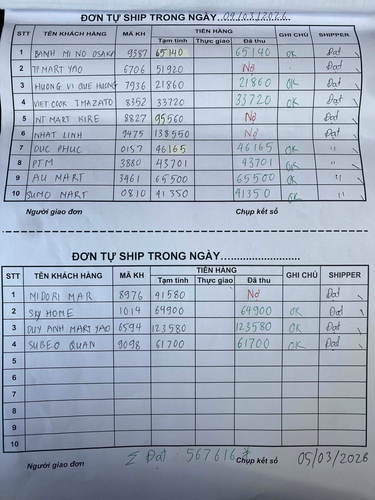 ĐƠN TỰ SHIP TRONG NGÀY 09/03/2026
STT TÊN KHÁCH HÀNG MÃ KH TIỀN HÀNG GHI CHÚ SHIPPER
Tạm tính Thực giao Đã thu
1 BANH MI NO OSAKA 9387 65140 65140 OK Đạt
2 TPMART YAO 6706 51920 Nợ Đạt
3 HUONG VI QUE HUONG 7936 21860 21860 OK Đạt
4 VIET COOK IMAZATO 8352 33720 33720 OK Đạt
5 NT MART KIRE 8827 95560 Nợ Đạt
6 NHAT LINH 9475 138550 Nợ Đạt
7 DUC PHUC 0157 46165 46165 OK "
8 PTM 3880 43701 43701 OK "
9 AU MART 3461 65500 65500 OK "
10 SUMO MART 0810 41350 41350 OK "
Người giao đơn Chụp kết số
ĐƠN TỰ SHIP TRONG NGÀY
STT TÊN KHÁCH HÀNG MÃ KH TIỀN HÀNG GHI CHÚ SHIPPER
Tạm tính Thực giao Đã thu
1 MIDORI MAR 8976 41580 Nợ Đạt
2 HOME 1014 64900 64900 OK Đạt
3 DUY ANH MART YAO 6594 123580 123580 OK Đạt
4 SUBEO QUAN 9098 61700 61700 OK Đạt
5
6
7
8
9
10
Người giao đơn Σ Đạt : 567616 ¥ Chụp kết số 09/03/2026